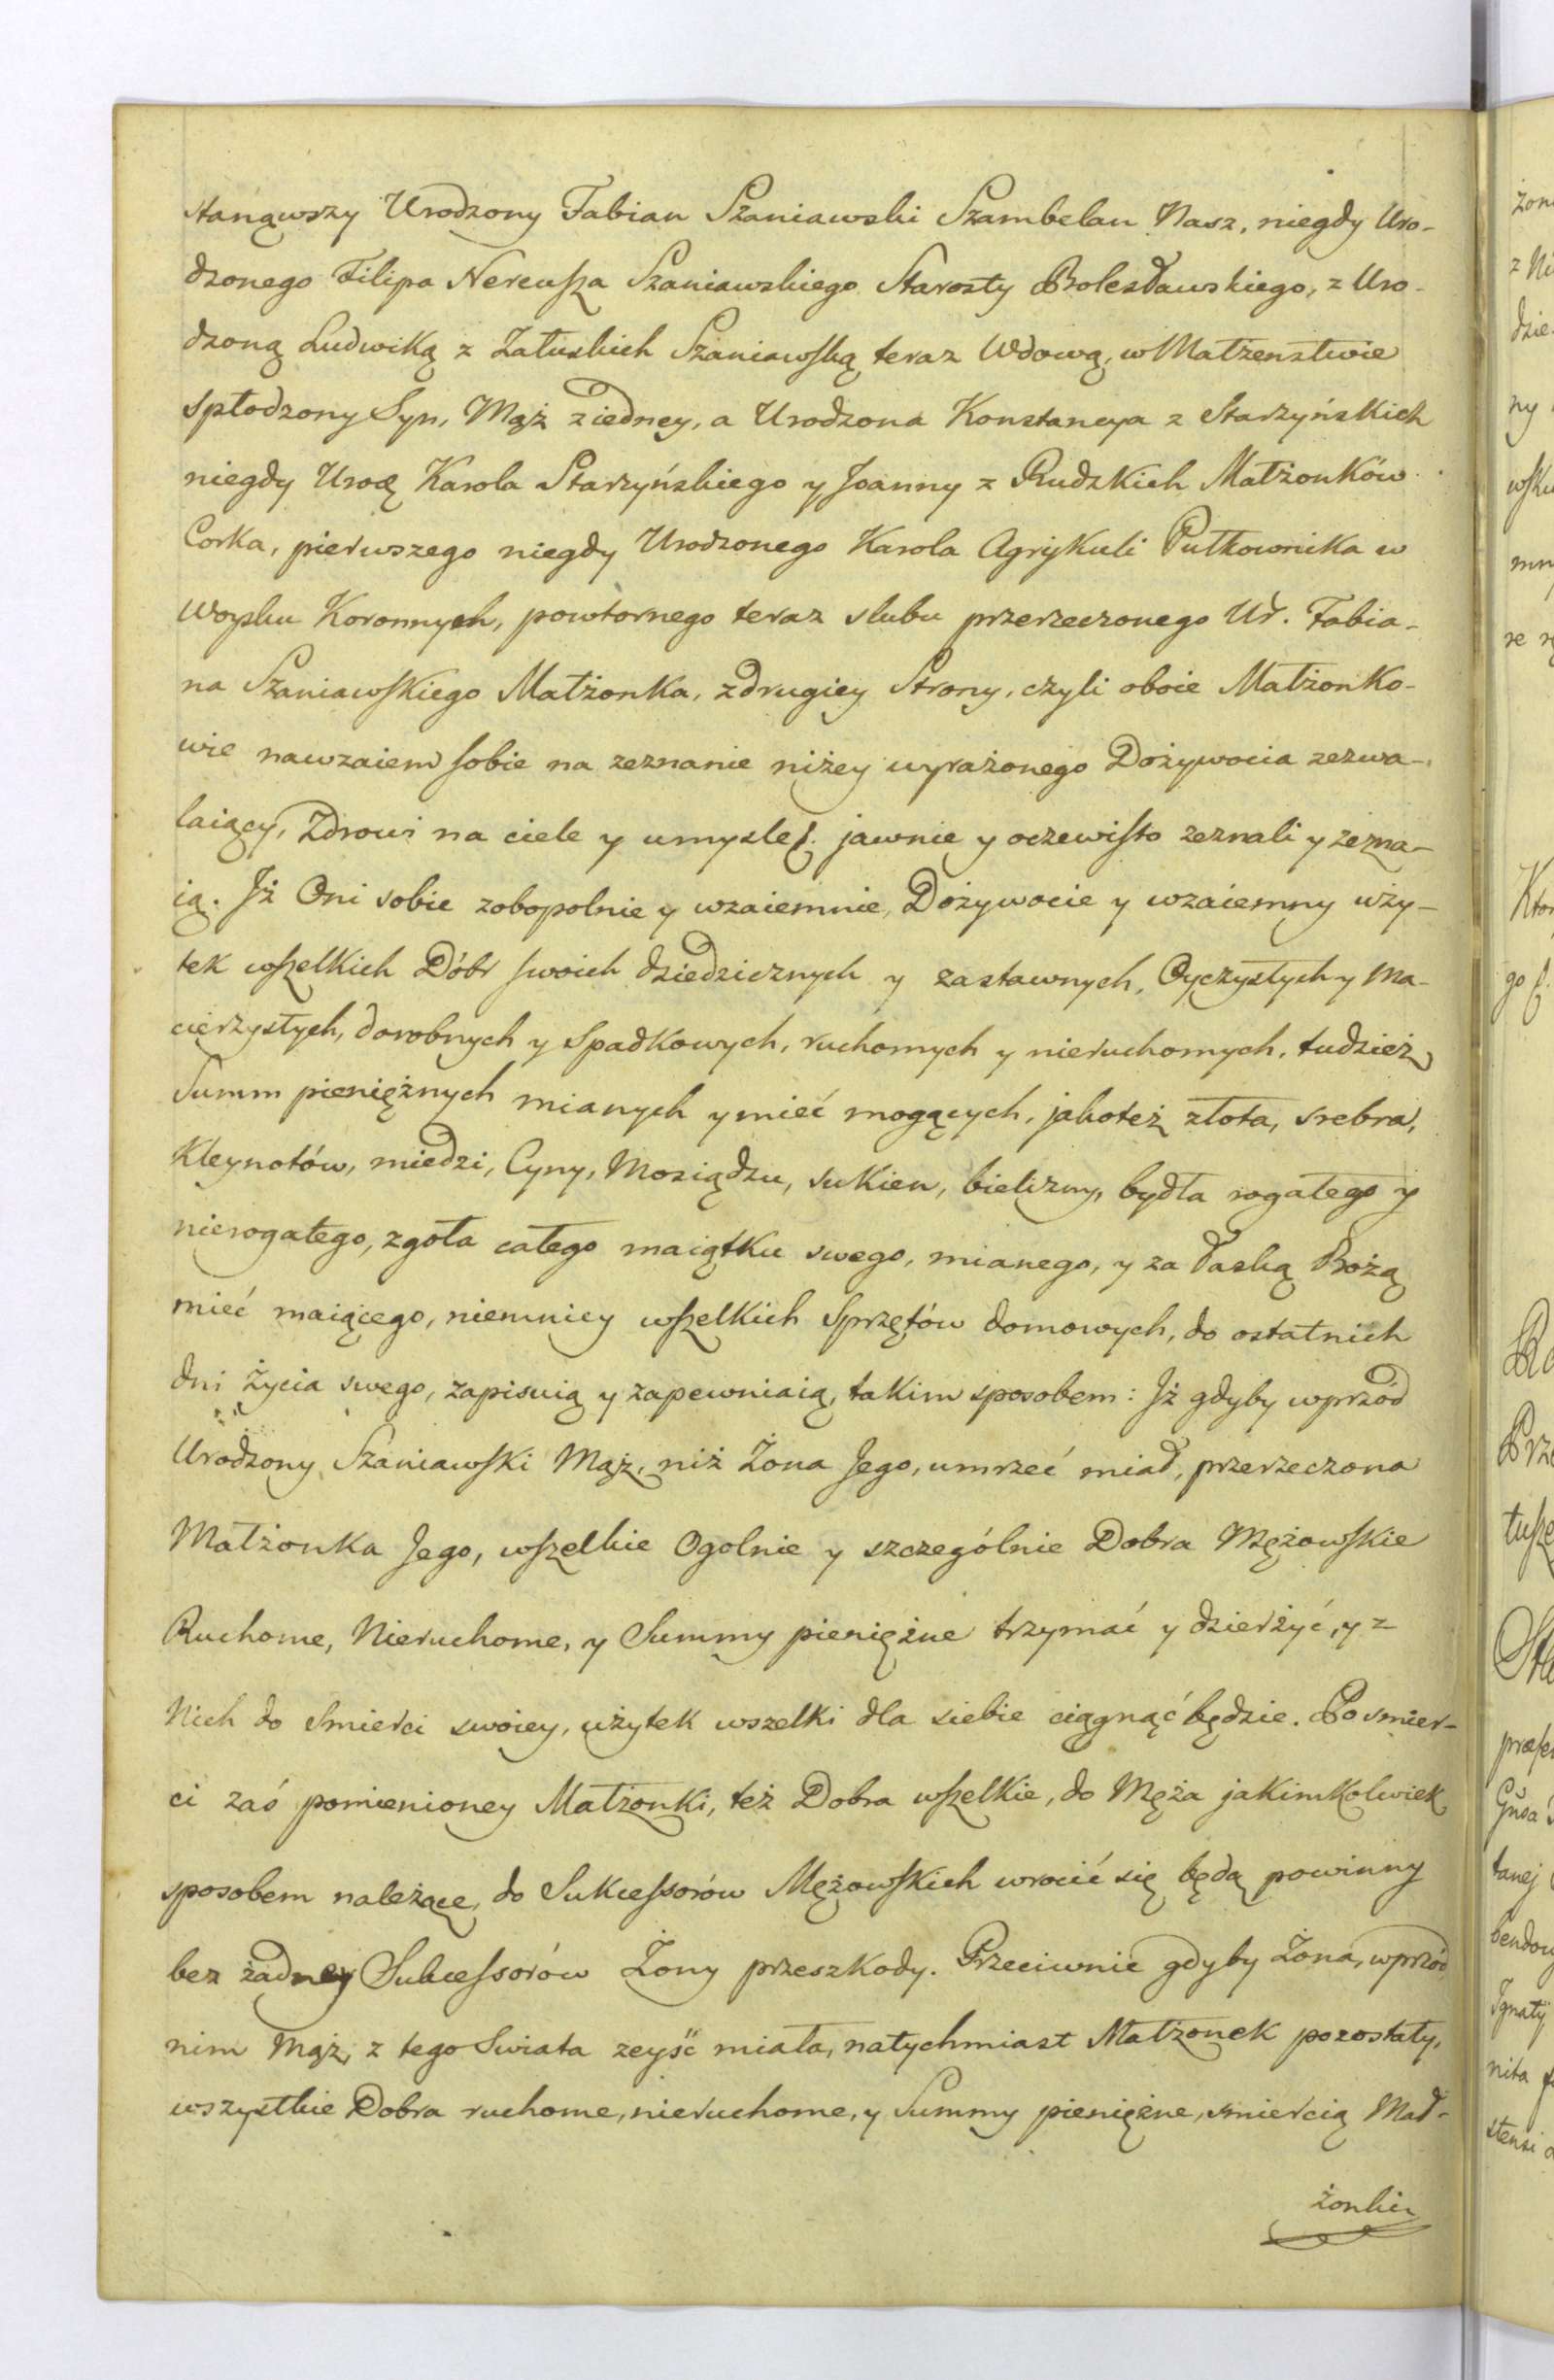 stanąwszy Urodzony Fabian Szaniawski Szambelan Nasz, niegdy Uro-
dzonego Filipa Nereusza Szaniawskiego Starosty Bolesławskiego, z Uro-
dzoną Ludwiką z Załuskich Szaniawską teraz Wdową, w Małżenstwie
spłodzony Syn, Mąż z iedney, a Urodzona Konstancya z Starzyńskich
niegdy Urod. Karola Starzyńskiego y Joanny z Rudzkich Małżonków
Corka, pierwszego niegdy Urodzonego Karola Agrykuli Pułkownika w
Woysku Koronnych, powtornego teraz slubu przerzeczonego Ur. Fabia-
na Szaniawskiego Małżonka, z drugiey Strony, czyli oboie Małżonko-
wie nawzaiem sobie na zeznanie niżey wyrażonego Dożywocia zezwa-
laiący, Zdrowi na ciele y umysle jawnie y oczewisto zeznali y zezna-
ią. Jż Oni sobie zobopolnie y wzaiemnie, Dożywocie y wzaiemny uży-
tek wszelkich Dóbr swoich dziedzicznych y zastawnych, Oyczystych y Ma-
cierzystych, dorobnych y Spadkowych, ruchomych y nieruchomych, tudzież
Summ pieniężnych mianych y mieć mogących, jakoteż złota, srebra,
Kleynotów, miedzi, Cyny, Mosiądzu, sukien, bielizny, bydła rogatego y
nierogatego, zgoła całego maiątku swego, mianego, y za łaską Bożą
mieć maiącego, niemniey wszelkich Sprzętów domowych, do ostatnich
dni Życia swego, zapisuią y zapewniaią, takim sposobem: Jż gdyby wprzód
Urodzony Szaniawski Mąż, niż Żona Jego, umrzeć miał, przerzeczona
Małżonka Jego, wszelkie Ogolnie y szczególnie Dobra Mężowskie
Ruchome, Nieruchome, y Summy pieniężne trzymać y dzierżyć, y z
Nich do smierci swoiey, użytek wszelki dla siebie ciągnąć będzie. Po smier-
ci zaś pomienioney Małżonki, też Dobra wszelkie, do Męża jakimkolwiek
sposobem należące, do Sukcessorów Mężowskich wrocić się będą powinny
bez żadney Sukcessorów Żony przeszkody. Przeciwnie gdyby Żona, wprzód
nim Mąż, z tego Swiata zeyść miała, natychmiast Małżonek pozostały,
wszystkie Dobra ruchome, nieruchome, y Summy pieniężne, smiercią Mał-
żonki